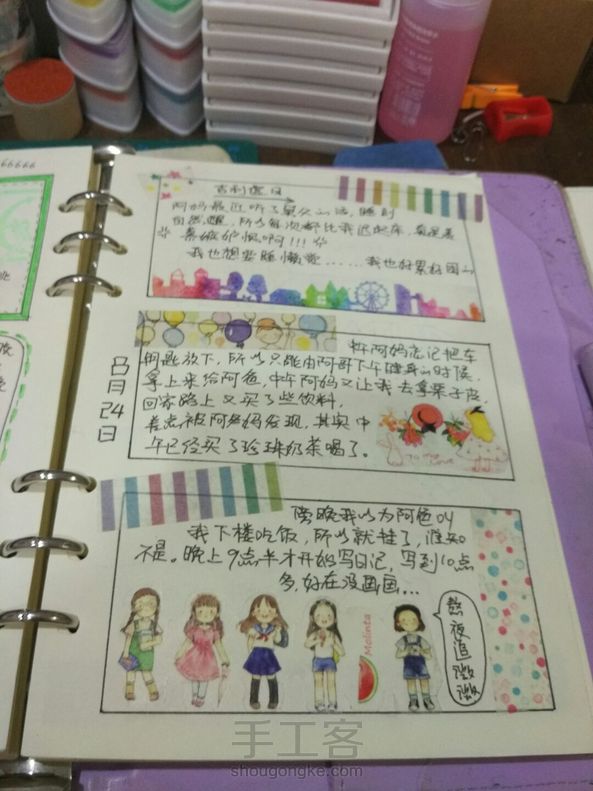 66666
吉利农日
阿妈最近听了莫久的话,睡到
自然醒,所以每次都比我迟起床,真是羡
慕嫉妒恨啊!!!
我也想要睡懒觉......我也好累好困
8月24日
中午阿妈忘记把车
钥匙放下,所以只能由阿哥下午健身的时候
拿上来给阿爸,中午阿妈又让我去拿栗子皮,
回家路上又买了些饮料,
差点被阿爸妈发现,其实中
午已经买了珍珠奶茶喝了。
to my Love
傍晚我以为阿爸叫
我下楼吃饭,所以就挂了,谁知
不是。晚上9点半才开始写日记,写到10点
多,好在没画画...
Molinta
熬夜追微微
手工客
shougongke.com